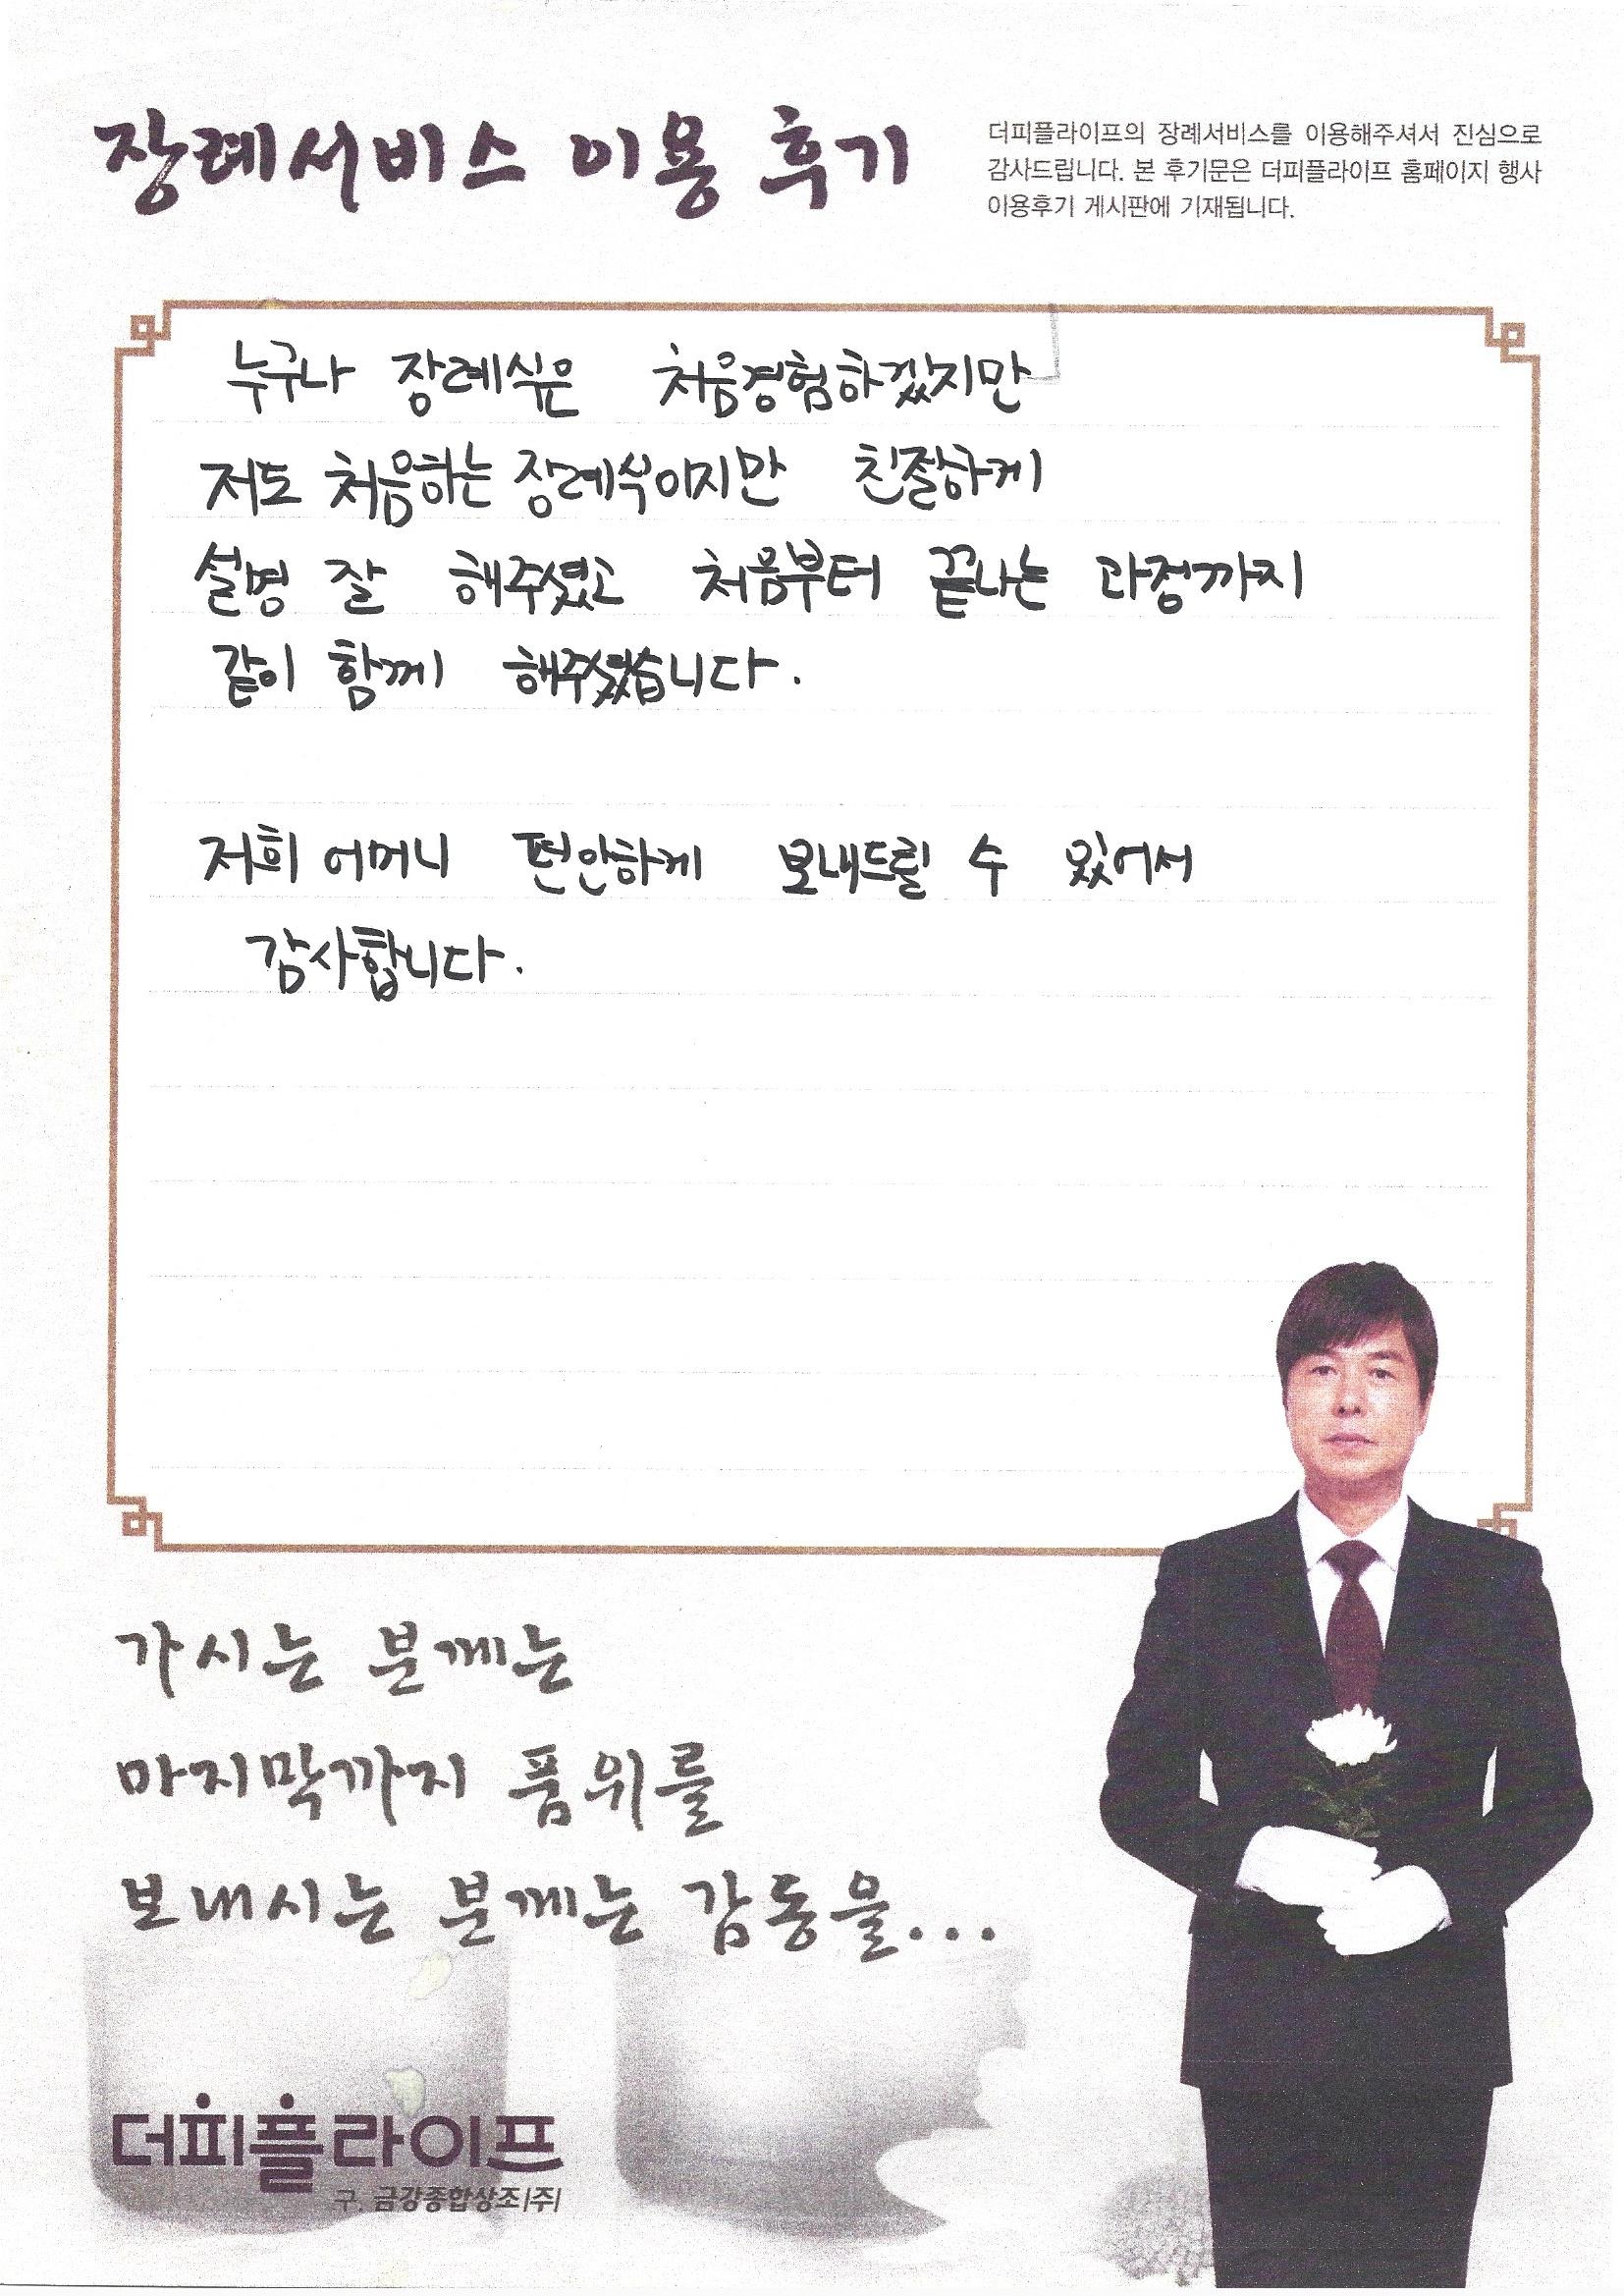 장례서비스 이용 후기
더피플라이프의 장례서비스를 이용해주셔서 진심으로
감사드립니다. 본 후기문은 더피플라이프 홈페이지 행사
이용후기 게시판에 기재됩니다.
누구나 장례식은 처음경험하겠지만
저도 처음하는 장례식이지만 친절하게
설명 잘 해주셨고 처음부터 끝나는 과정까지
같이 함께 해주셨습니다.
저희 어머니 편안하게 보내드릴 수 있어서
감사합니다.
가시는 분께는
마지막까지 품위를
보내시는 분께는 감동을...
더피플라이프
구. 금강종합상조|주|